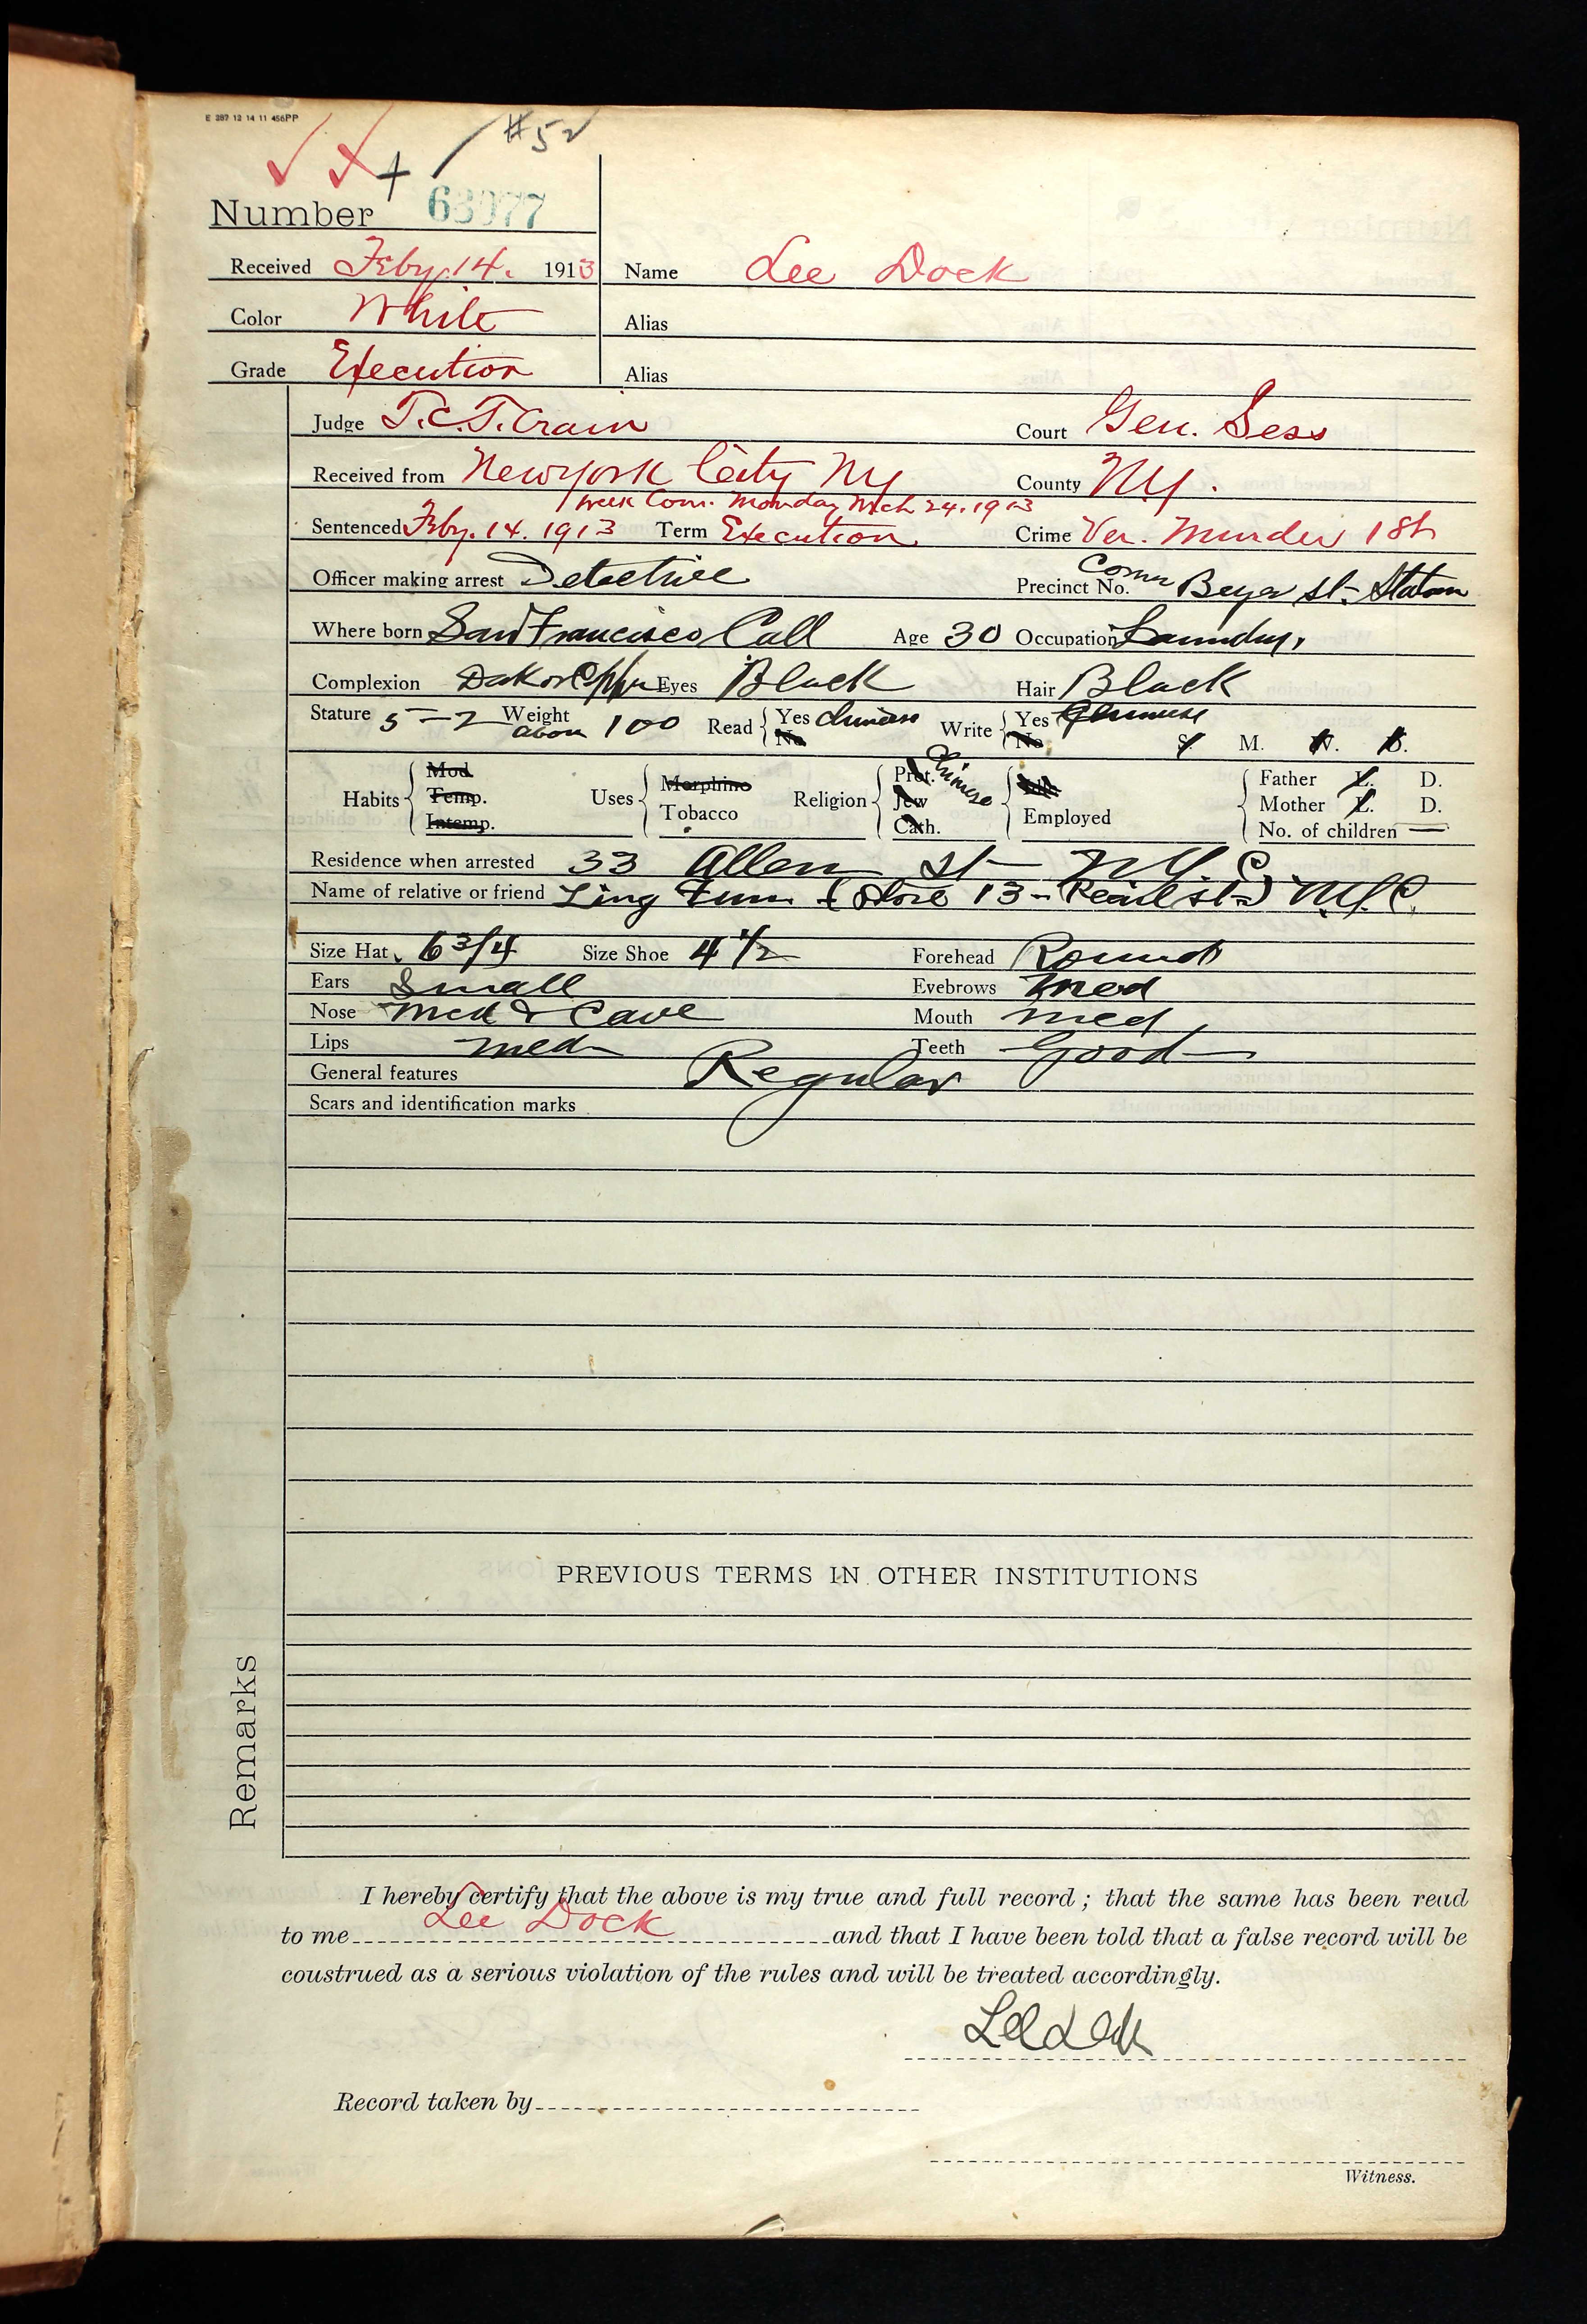 E 287 12 14 11 456PP
#52
Number 63077
Received Feby. 14. 1913 Name Lee Dock
Color White Alias
Grade Execution Alias
Judge T.C.T. Crain Court Gen. Sess
Received from New York City NY County NY.
week Com. Monday Mch 24. 1913
Sentenced Feby. 14. 1913 Term Execution Crime Ver. Murder 1st
Officer making arrest Detective Precinct No. St- Station
Where born San Francisco Call Age 30 Occupation Laundry,
Complexion Eyes Black Hair Black
Stature 5-2 Weight about 100 Read Yes Chinese No Write Yes Chinese No S. M. W. B.
Habits Mod. Temp. Intemp. Uses Morphine Tobacco Religion Prot. Jew Cath. Chinese Idle Employed Father L. D.
Mother L. D.
No. of children —
Residence when arrested 33 Allen St- NYC
Name of relative or friend Ling (Store 13- St-) N.Y.C.
Size Hat 6 3/4 Size Shoe 4 1/2 Forehead Round
Ears Small Eyebrows Med
Nose Med & Cave Mouth Med,
Lips Med- Teeth Good-
General features Regular
Scars and identification marks
PREVIOUS TERMS IN OTHER INSTITUTIONS
Remarks
I hereby certify that the above is my true and full record; that the same has been read
to me Lee Dock and that I have been told that a false record will be
coustrued as a serious violation of the rules and will be treated accordingly.
Record taken by
Witness.